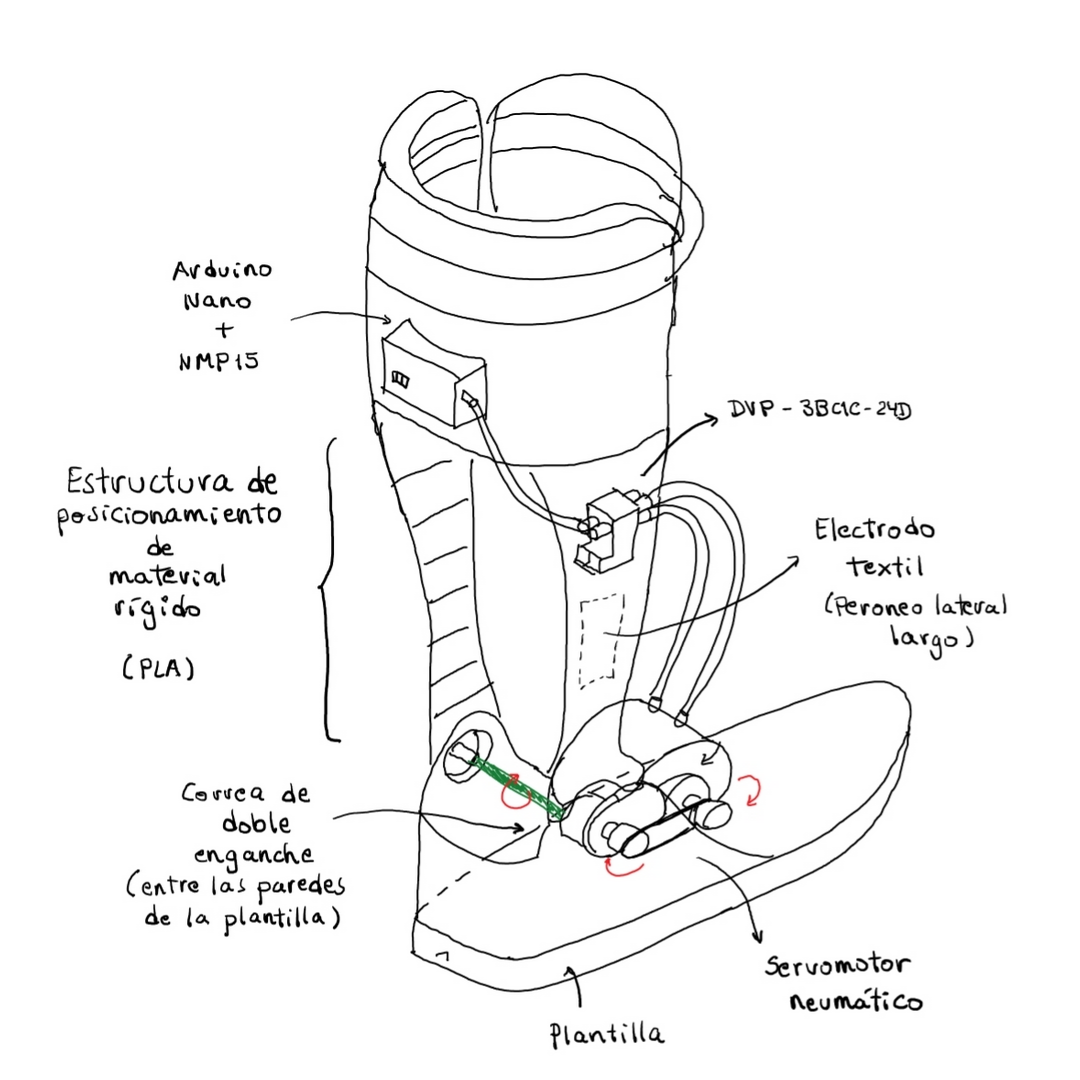 Arduino
Nano
+
NMP15
DVP - 3BC1C-24D
Estructura de
posicionamiento
de
material
rígido
(PLA)
Electrodo
textil
(Peroneo lateral
largo)
Correa de
doble
enganche
(entre las paredes
de la plantilla)
Servomotor
neumático
Plantilla